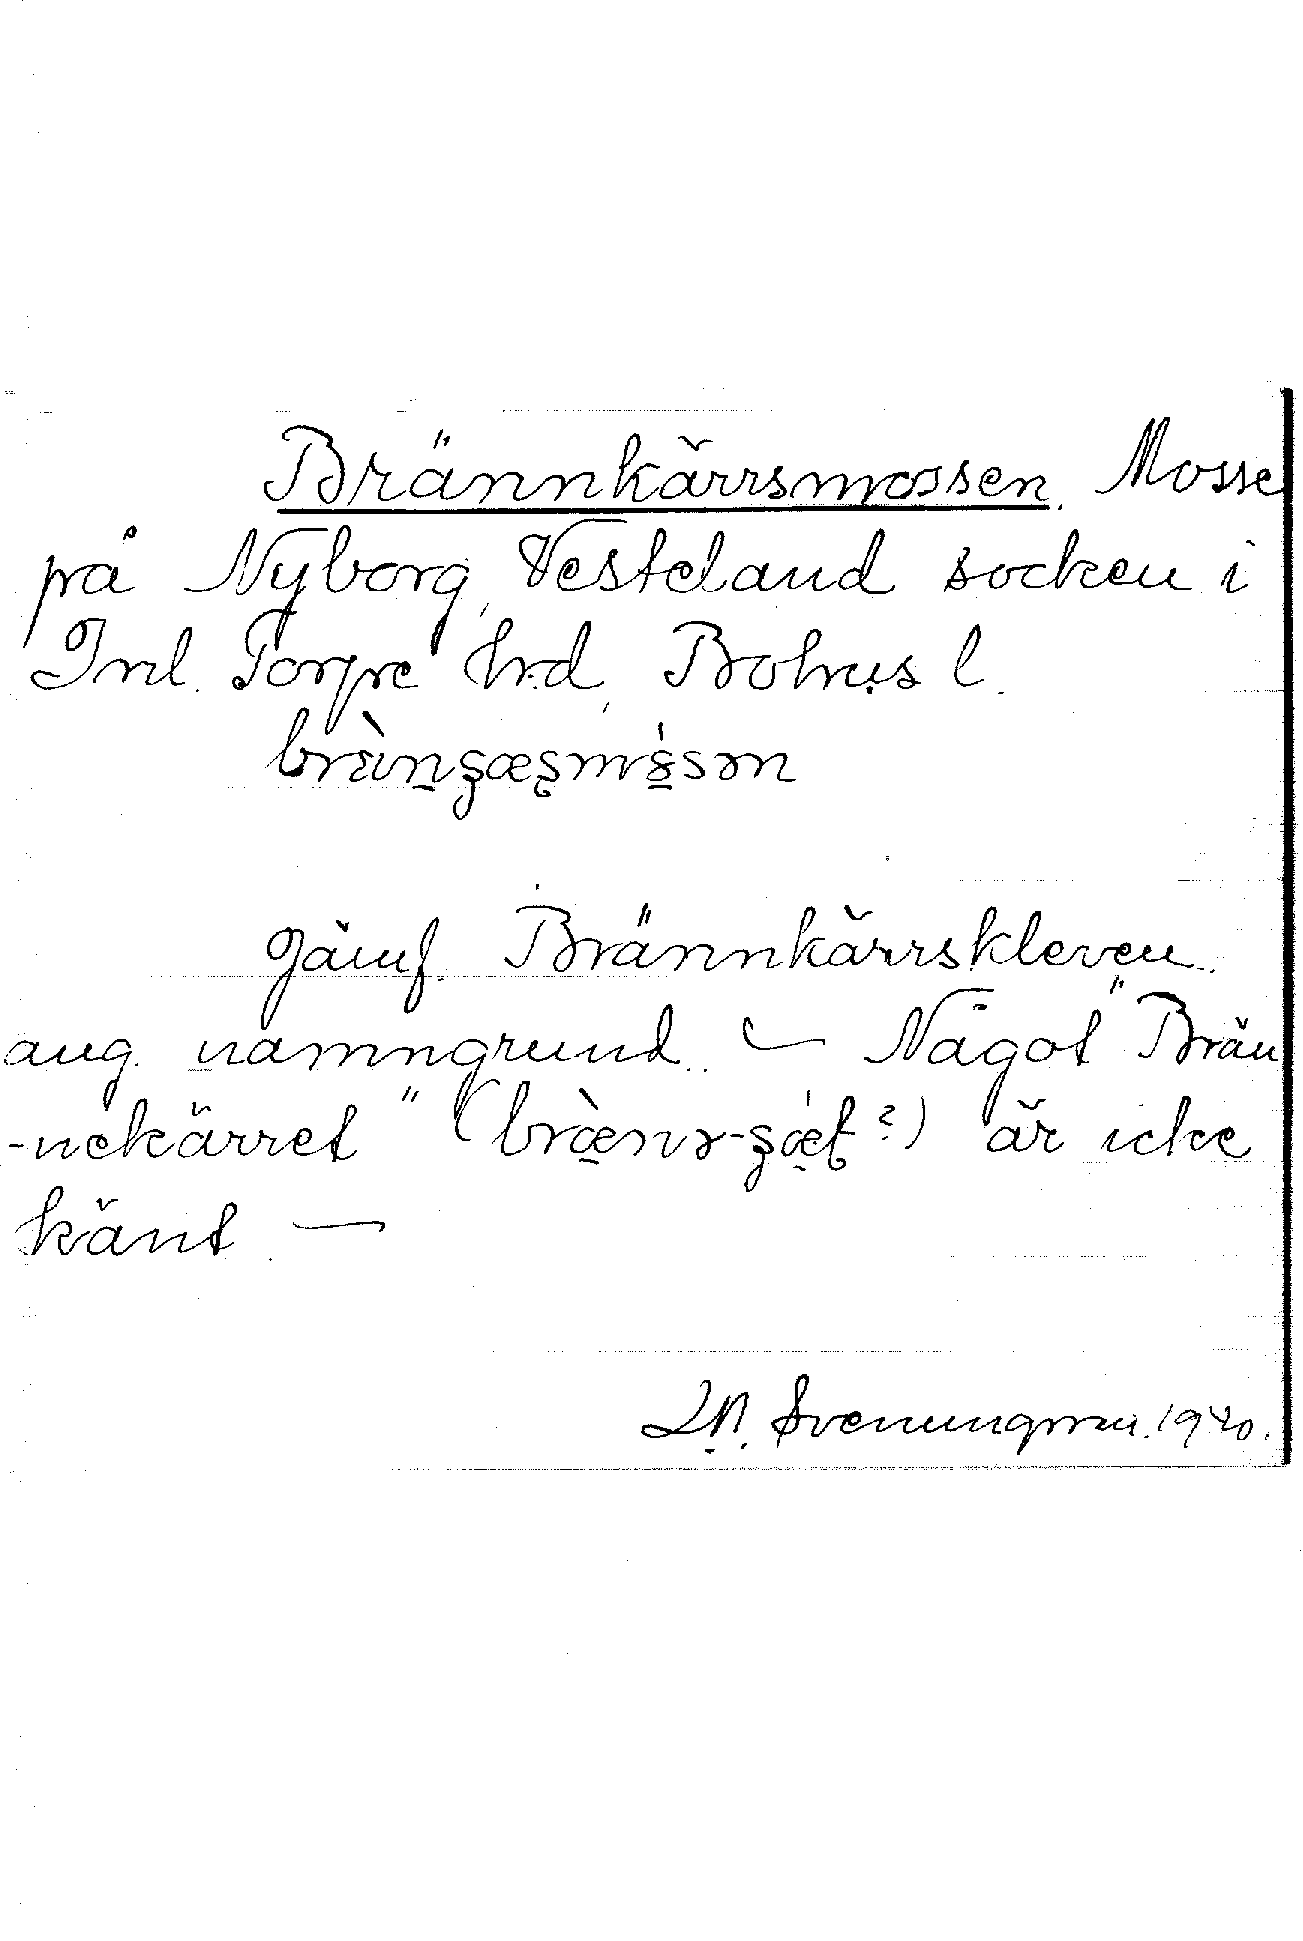 Brännkärrsmossen. Mosse
på Nyborg, Vesteland socken i
Inl. Torpe hrd, Bohus l.
Jämf. Brännkärrskleven
ang. namngrund. — Något "Brän
-nekärret" ( ?) är icke
känt. —
Svenungsson. 1940.